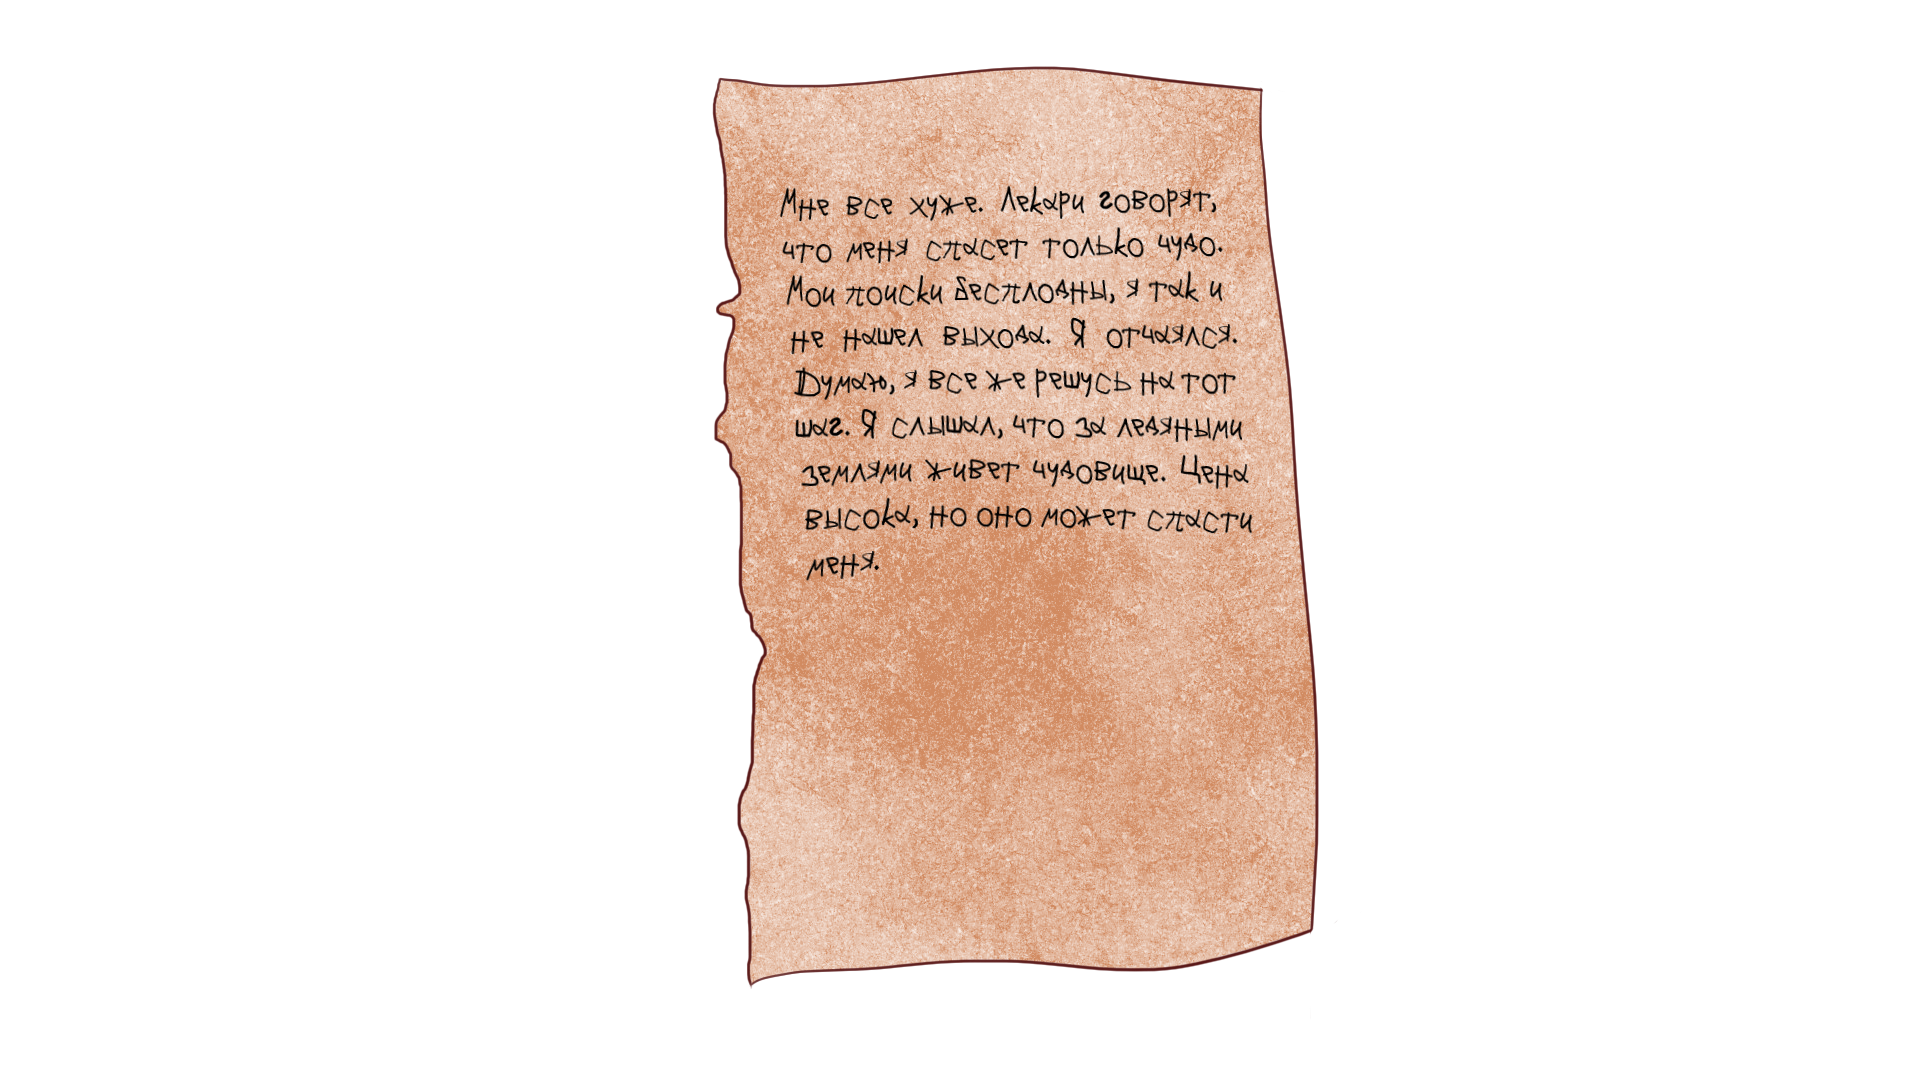 Мне все хуже. Лекари говорят,
что меня спасет только чудо.
Мои поиски бесплодны, я так и
не нашел выхода. Я отчаялся.
Думаю, я все же решусь на тот
шаг. Я слышал, что за ледяными
землями живет чудовище. Цена
высока, но оно может спасти
меня.